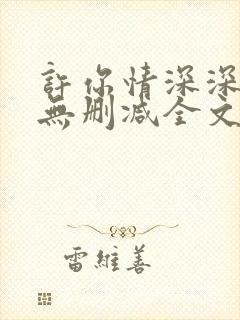 許你情深深
無删减全文
雷維善